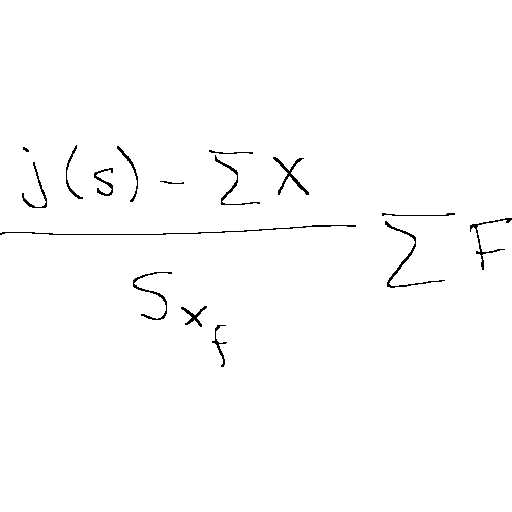 \frac{j(s) - \sum X}{S_{x_f}} \sum F